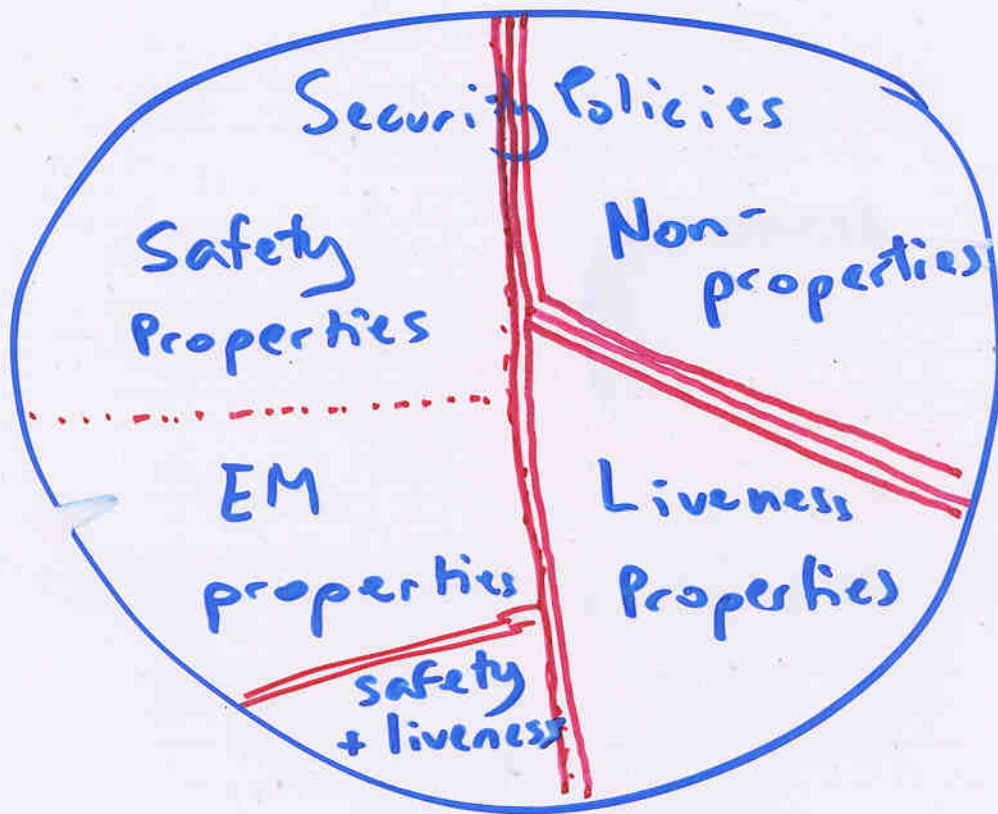 Security Policies
Safety
Properties
Non-
properties
EM
properties
Liveness
Properties
safety
+ liveness